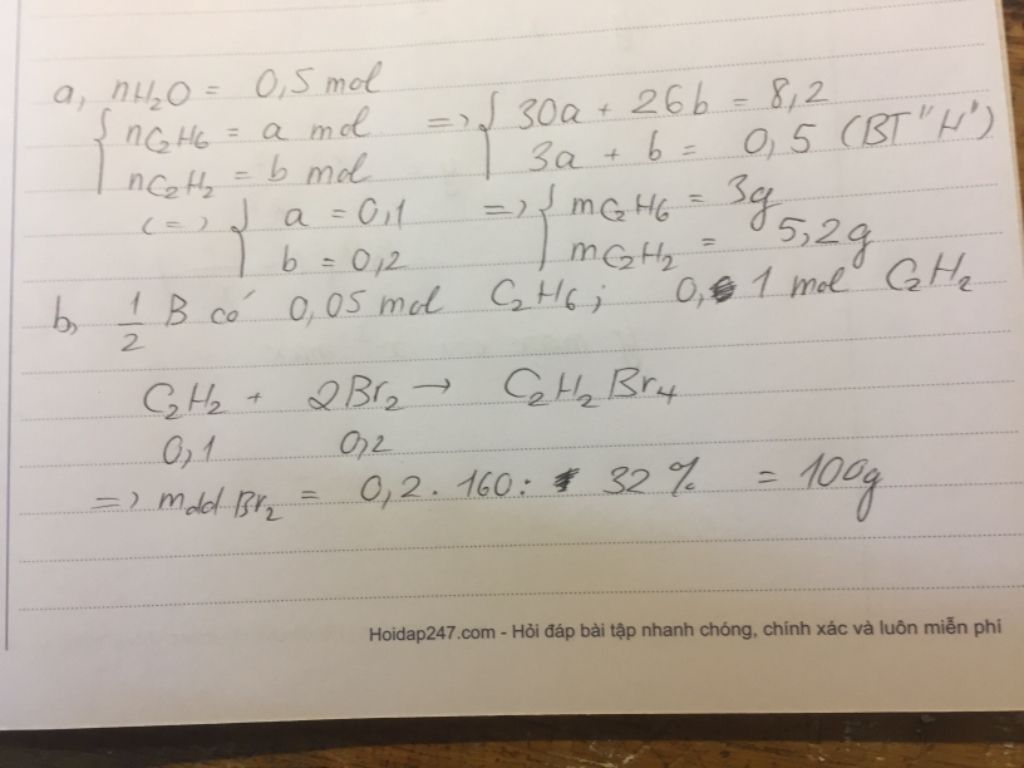 a, nH2O = 0,5 mol
{ nC2H6 = a mol => { 30a + 26b = 8,2
nC2H2 = b mol 3a + b = 0,5 (BT "H")
(=) { a = 0,1 => { mC2H6 = 3g
b = 0,2 mC2H2 = 5,2g
b, 1/2 B có 0,05 mol C2H6; 0,1 mol C2H2
C2H2 + 2Br2 → C2H2Br4
0,1 0,2
=> mdd Br2 = 0,2 . 160 : 32 % = 100g
Hoidap247.com - Hỏi đáp bài tập nhanh chóng, chính xác và luôn miễn phí